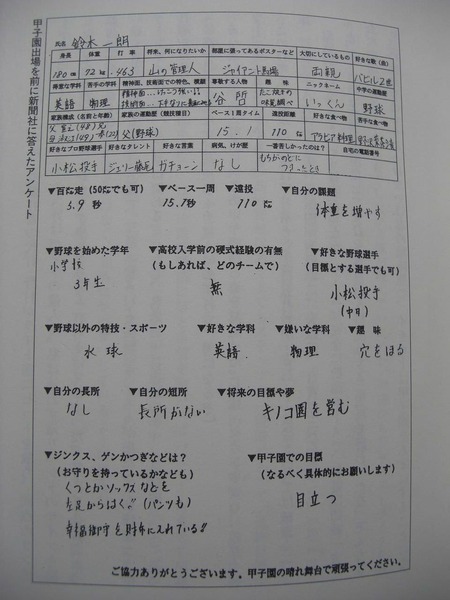 甲子園出場を前に新聞社に答えたアンケート
氏名 鈴木一朗
身長 体重 打率 将来、何になりたいか 部屋に張ってあるポスターなど 大切にしているもの 好きな歌(曲)
180cm 72kg .463 山の管理人 ジャイアント馬場 両親 バビル2世
得意な学科 苦手の学科 精神面、技術面での特色、横顔 尊敬する人物 趣味 ニックネーム 中学の運動歴
英語 物理 谷哲 いっくん 野球
家族構成(名前と年齢) 家族の運動歴(競技種目) ベース1周タイム 遠投距離 好きな食べ物 苦手な食べ物
父(野球) 15.1 110m アラビア料理
好きなプロ野球選手 好きなタレント 好きな言葉 病気、けが歴 一番苦しかったのは? 自宅の電話番号
小松投手 ジェリー藤尾 ガチョーン なし
▼百m走(50mでも可) ▼ベース一周 ▼遠投 ▼自分の課題
5.9秒 15.1秒 110m 体重を増やす
▼野球を始めた学年 ▼高校入学前の硬式経験の有無 ▼好きな野球選手
(もしあれば、どのチームで) (目標とする選手でも可)
小学校
3年生 無 小松投手
(中日)
▼野球以外の特技・スポーツ ▼好きな学科 ▼嫌いな学科 ▼趣味
水球 英語 物理 穴をほる
▼自分の長所 ▼自分の短所 ▼将来の目標や夢
なし 長所がない キノコ園を営む
▼ジンクス、ゲンかつぎなどは? ▼甲子園での目標
(お守りを持っているかなども) (なるべく具体的にお願いします)
くつとかソックスなどを
左足からはく!!(パンツも) 目立つ
幸福御守を財布に入れている!!
ご協力ありがとうございます。甲子園の晴れ舞台で頑張ってください。